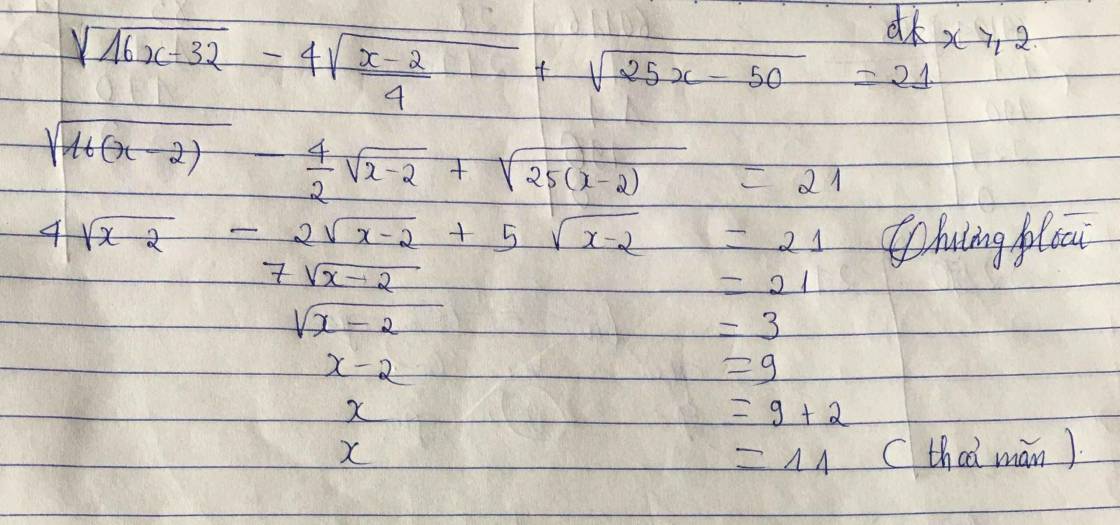 đk x ≥ 2.
√(16x-32) - 4√((x-2)/4) + √(25x - 50) = 21
√(16(x-2)) - 4/2 √(x-2) + √(25(x-2)) = 21
4√(x-2) - 2√(x-2) + 5√(x-2) = 21
7√(x-2) = 21
√(x-2) = 3
x-2 = 9
x = 9+2
x = 11 (thoả mãn).